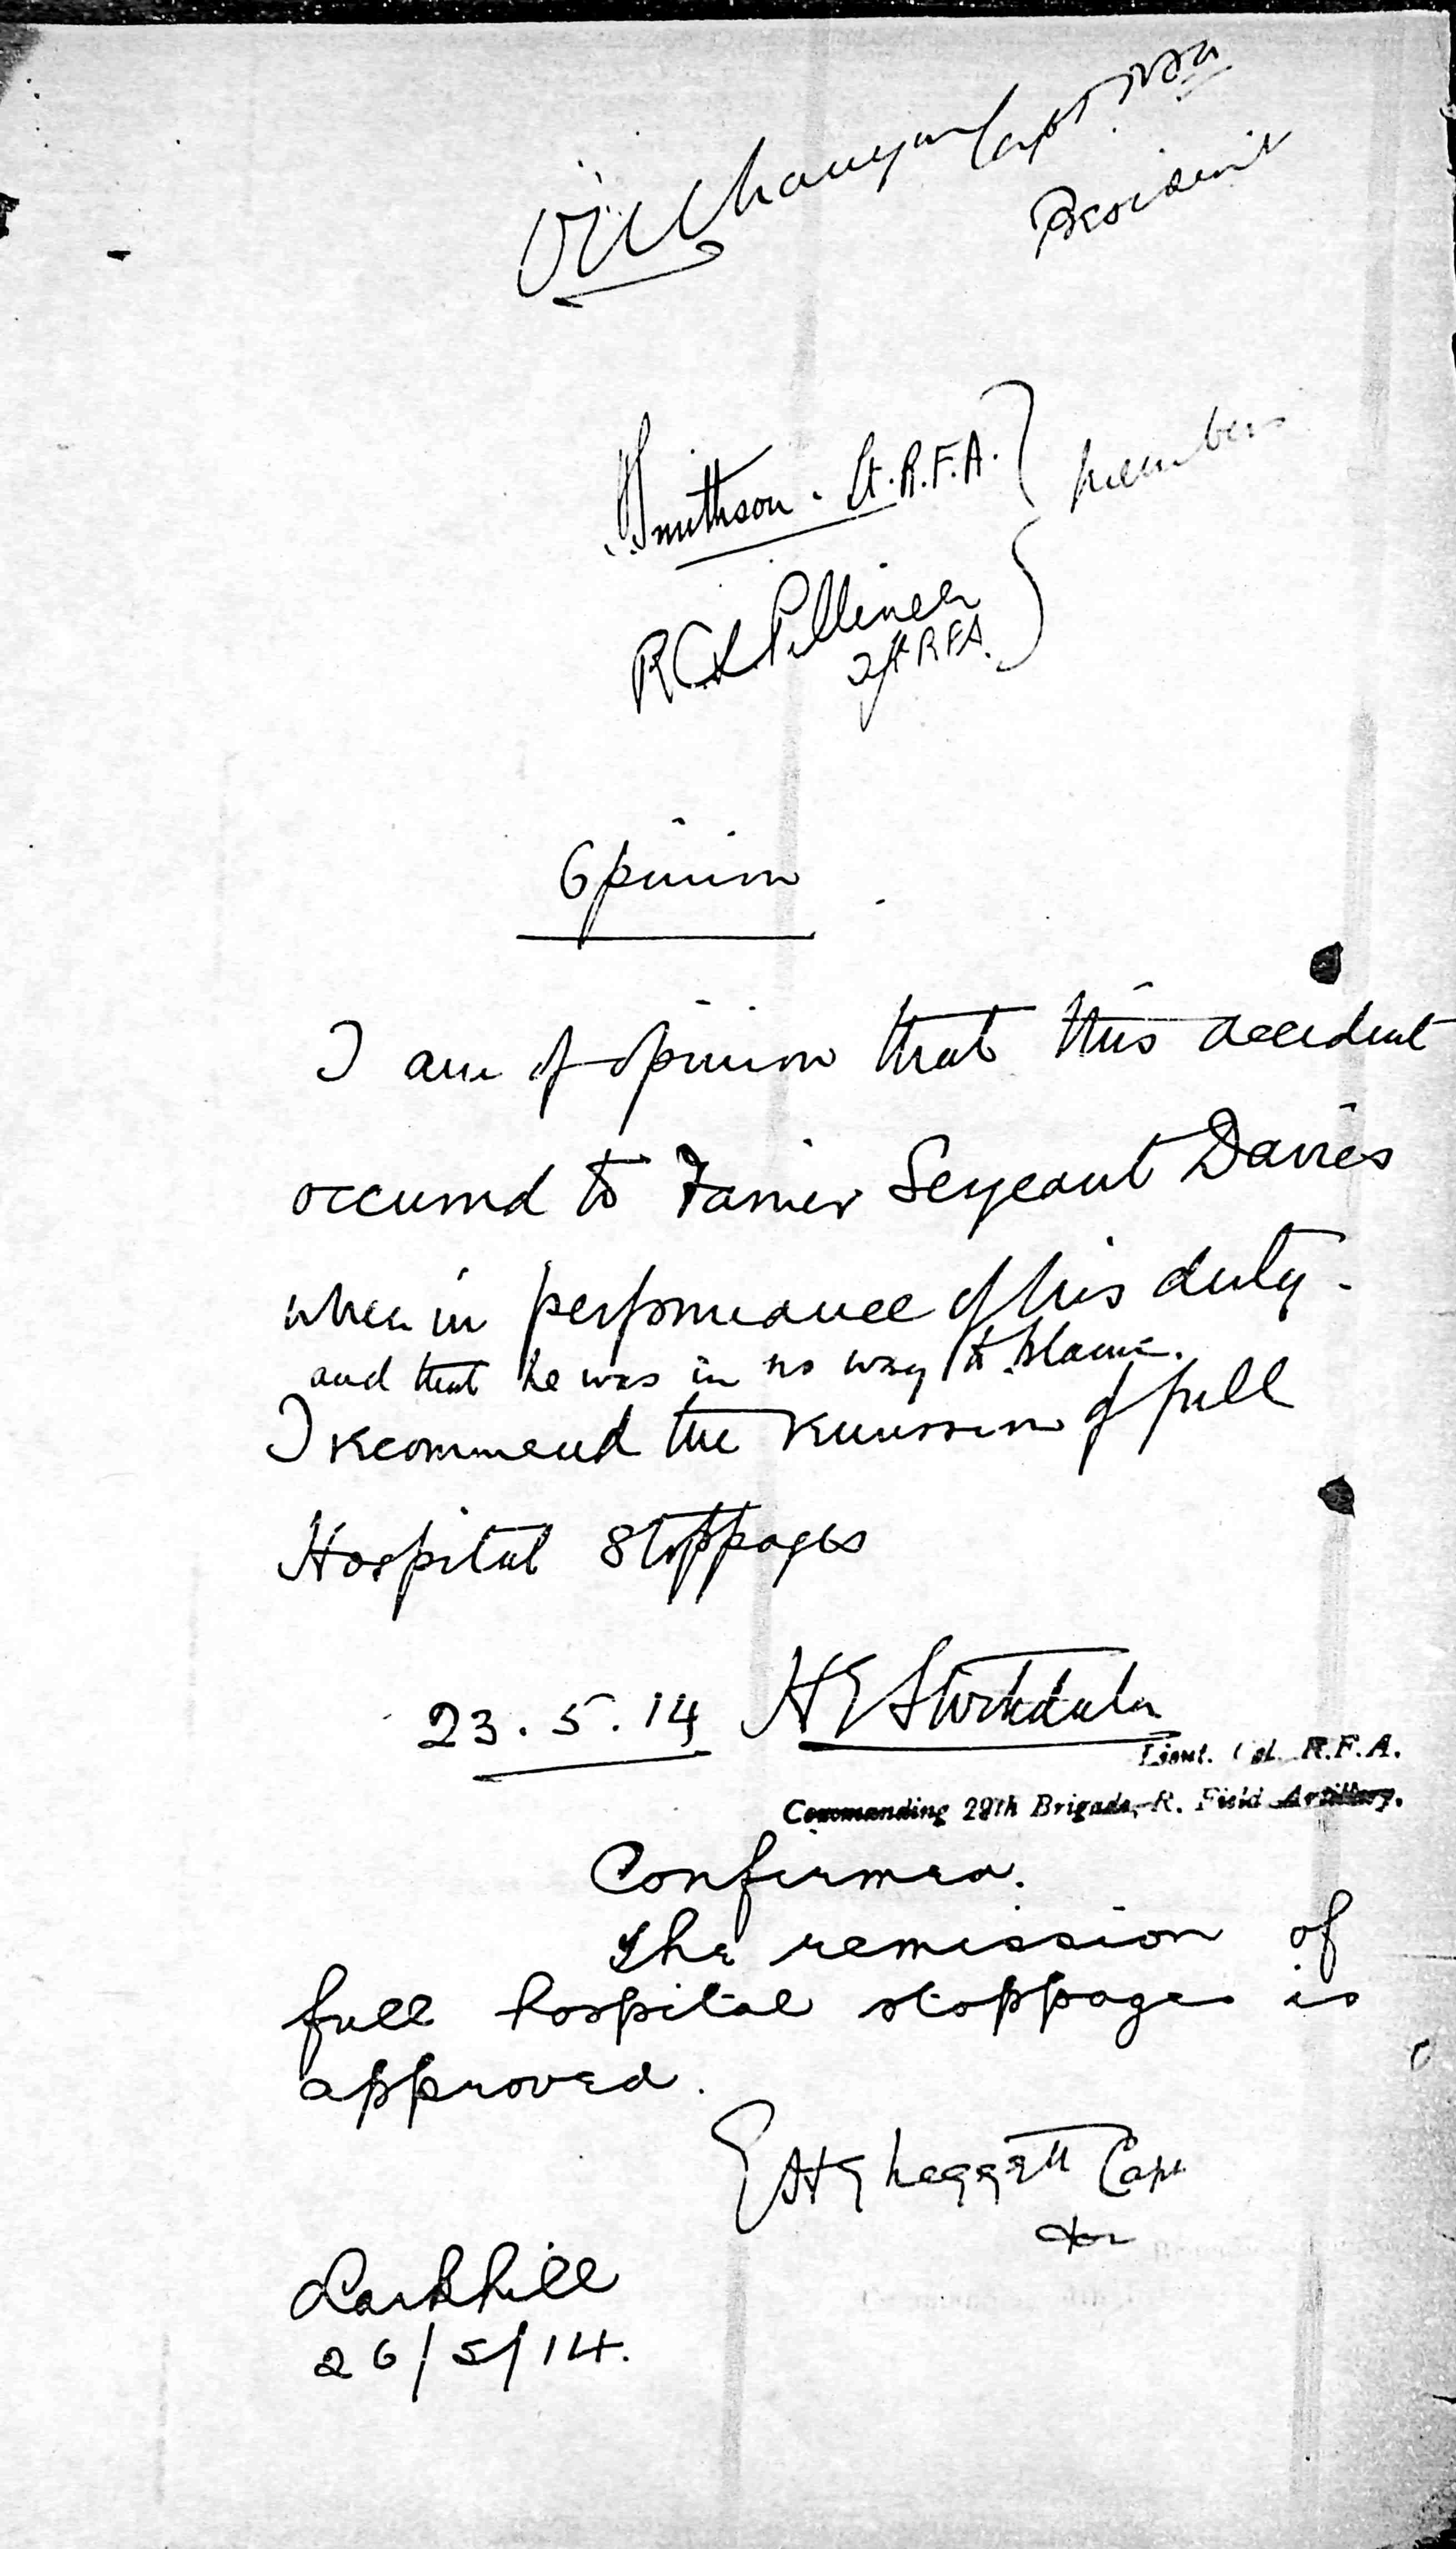 Capt RFA
President
Smithson . Lt. R.F.A.
Members
2/Lt RFA.
Opinion
I am of opinion that this accident
occurred to Farrier Sergeant Davies
when in performance of his duty.
and that he was in no way to blame.
I recommend the remission of full
Hospital Stoppages
23.5.14 H E Stockdale
Lieut. Col. R.F.A.
Commanding 28th Brigade, R. Field Artillery.
Confirmed.
The remission of
full hospital stoppages is
approved.
Leggett Capt
for
Larkhill
26/5/14.